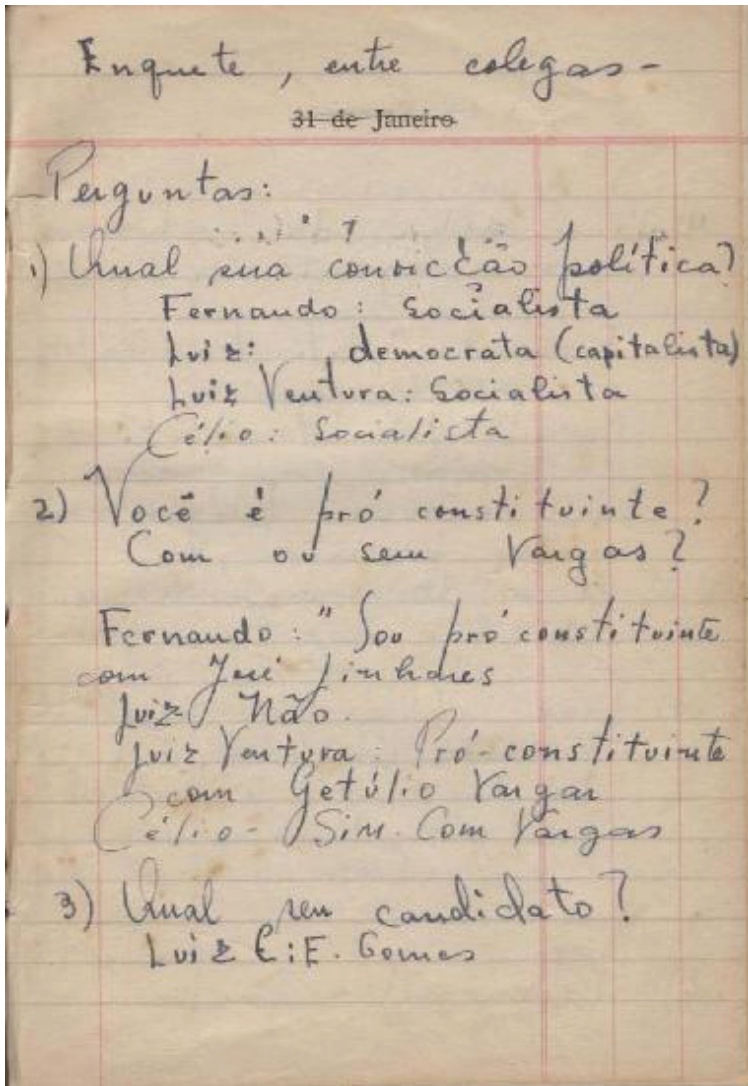 Enquete, entre colegas -
31 de Janeiro
Perguntas:
1) Qual sua convicção política?
Fernando: Socialista
Luiz: democrata (capitalista)
Luiz Ventura: Socialista
Célio: Socialista
2) Você é pró constituinte?
Com ou sem Vargas?
Fernando: "Sou pró constituinte
com José Linhares
Luiz Não.
Luiz Ventura: Pró-constituinte
com Getúlio Vargas
Célio - Sim. Com Vargas
3) Qual seu candidato?
Luiz C: E. Gomes